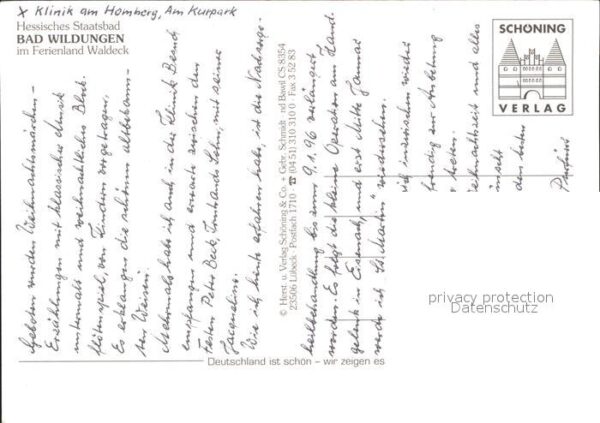 x Klinik am Homberg, Am Kurpark
Hessisches Staatsbad
BAD WILDUNGEN
im Ferienland Waldeck
SCHÖNING
VERLAG
Geboten wurden Weihnachtsmärchen-
Erzählungen mit klassischer Musik
untermalt und weihnachtliches Block-
flötenspiel, von Kindern vorgetragen.
Es erklangen die schönen altbekann-
ten Weisen.
Mehrmals habe ich auch in der Klinik Besuch
empfangen und erneute zwischen den
Peter Beck, Sohn, mit seiner
Jacqueline.
Wie ich heute erfahren habe, ist die Nachsorge-
© Herst. u. Verlag Schöning & Co. + Gebr. Schmidt und Bawil CS 8354
23506 Lübeck · Postfach 1710 ☎ (04 51) 310 310 0 · Fax 3 52 83
heilbehandlung bis zum 9.1.96 verlängert
worden. Es folgt die kleine Operation am Hand-
gelenk in Eisenach, und erst Mitte Januar
werde ich "St. Martin" wiedersehen.
ich inzwischen wieder
freudig zur Arbeit
Weihnachtszeit und alles
wünscht
den besten
privacy protection
Datenschutz
Deutschland ist schön – wir zeigen es